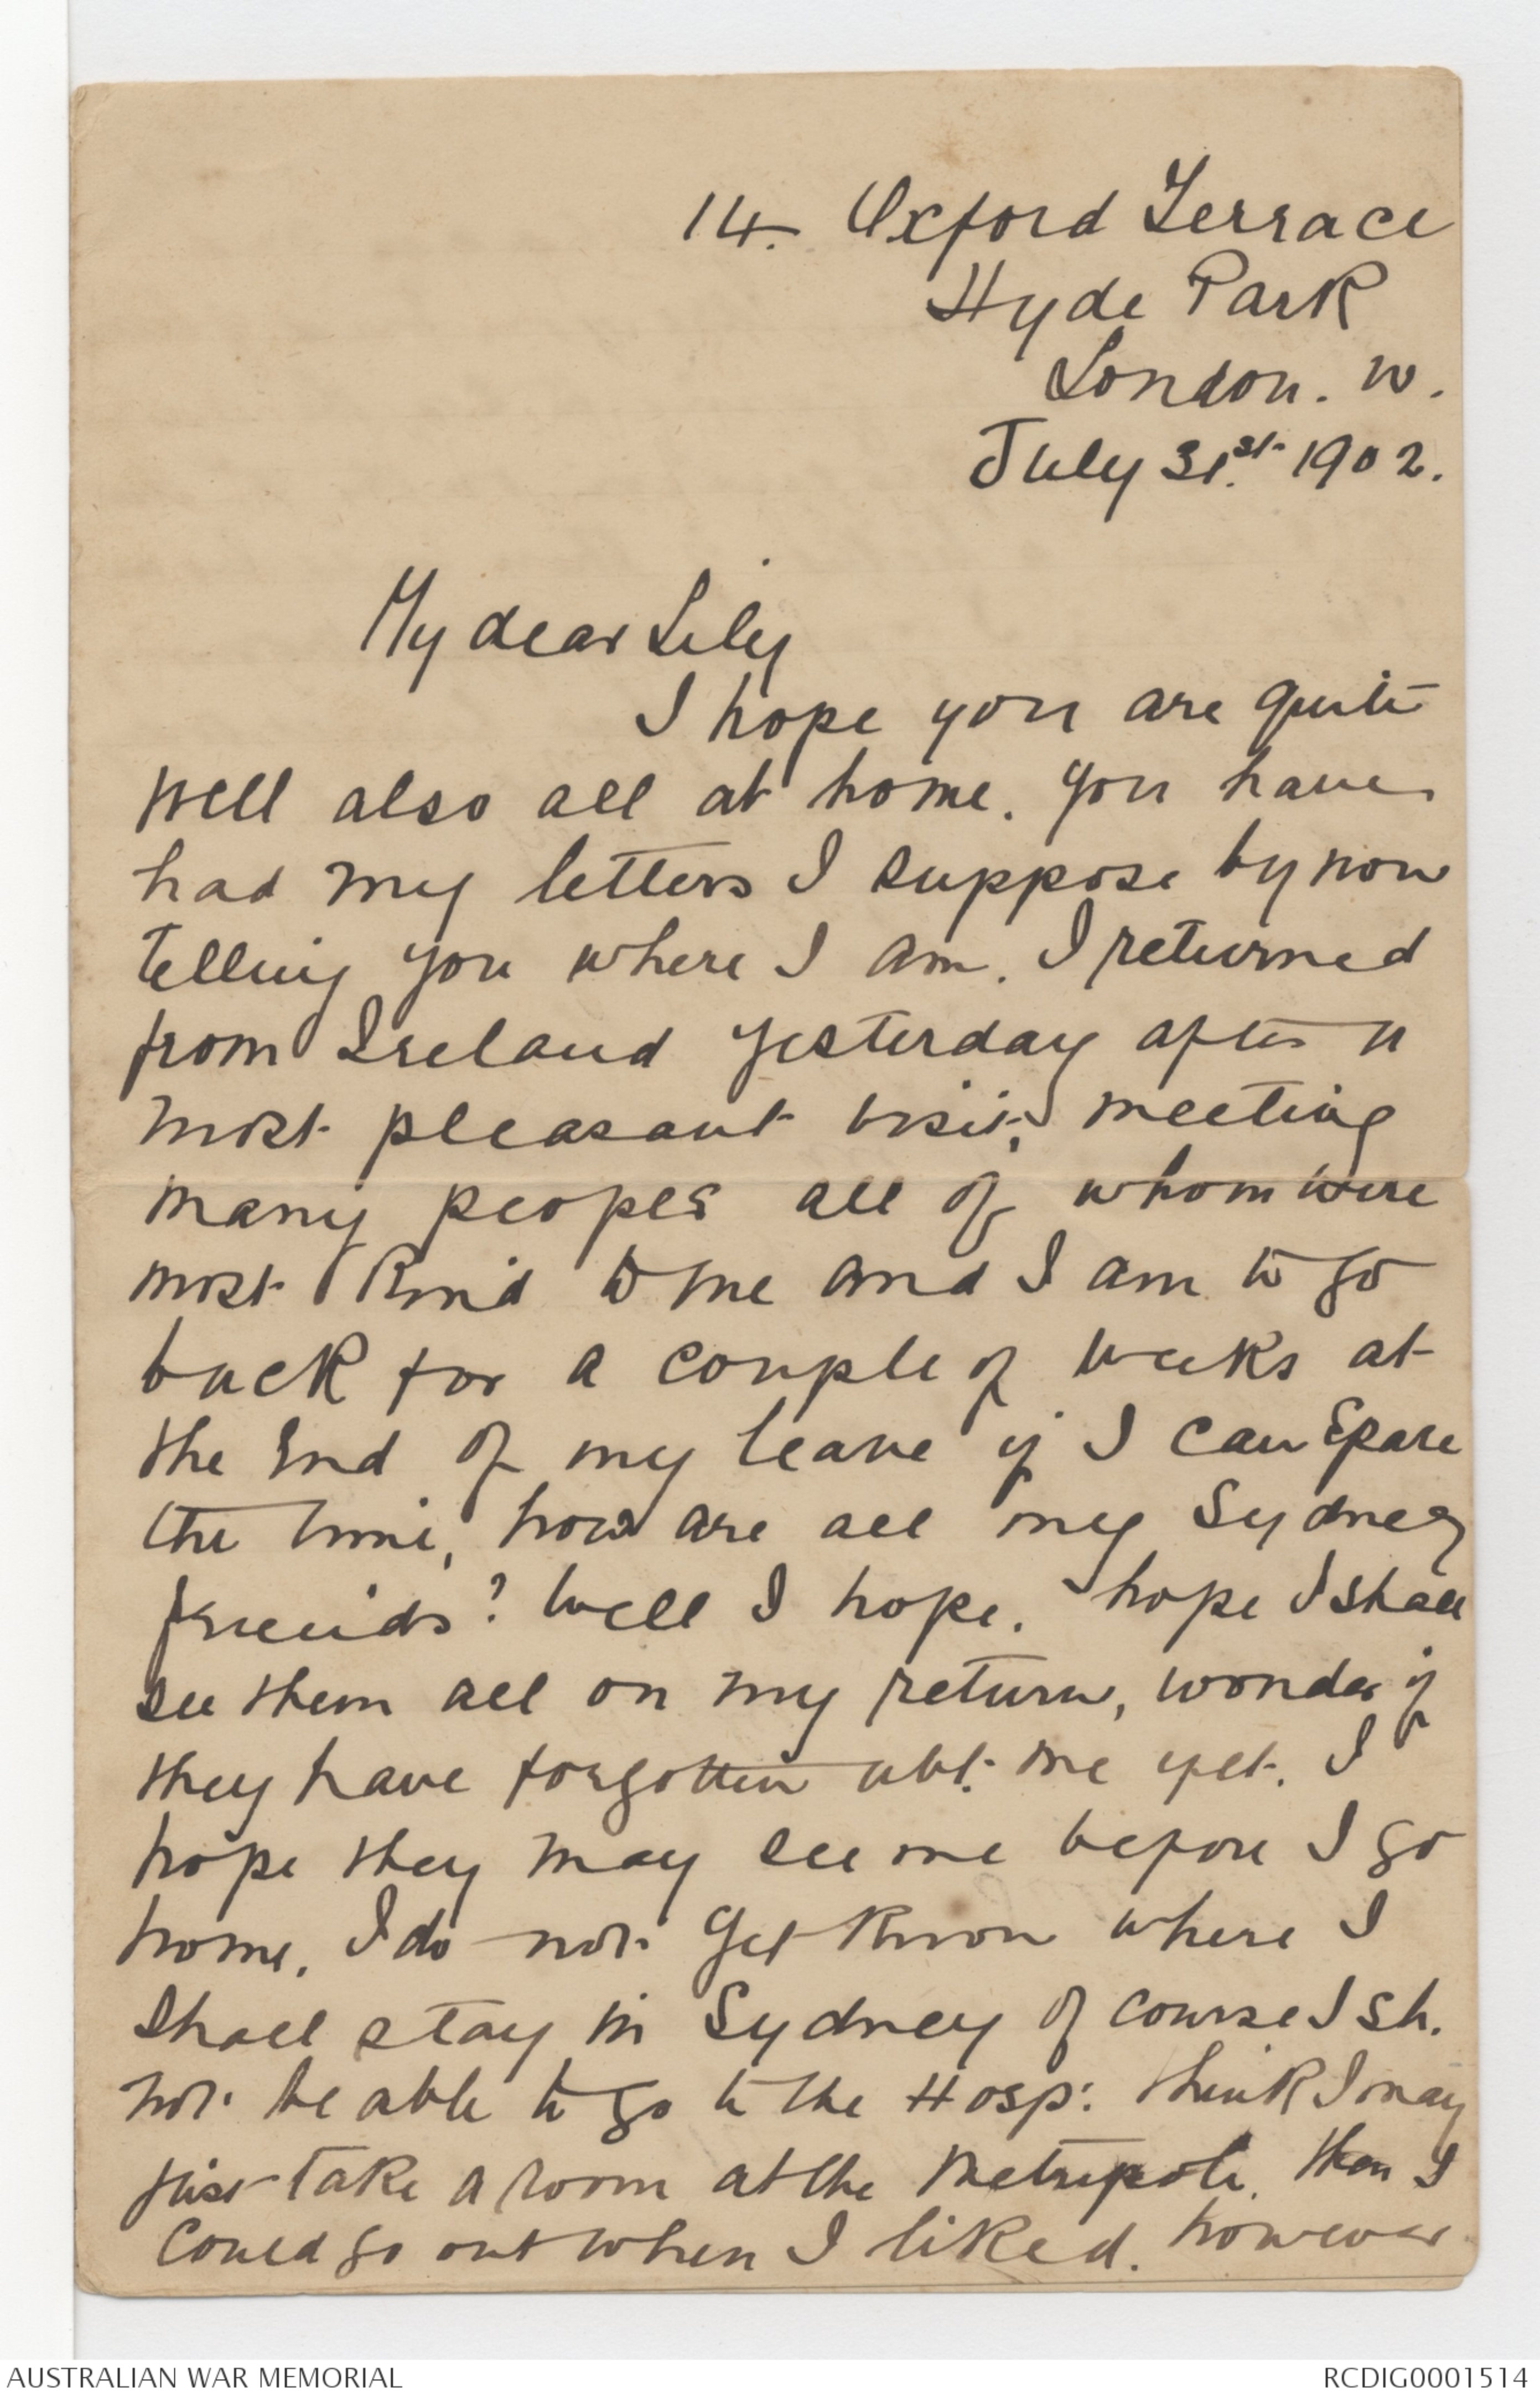 14. Oxford Terrace
Hyde Park
London. W.
July 31st. 1902.
My dear Lily
I hope you are quite
well also all at home. You have
had my letters I suppose by now
telling you where I am. I returned
from Ireland yesterday after a
most pleasant visit, meeting
many people all of whom were
most kind to me and I am to go
back for a couple of weeks at
the end of my leave if I can spare
the time, how are all my Sydney
friends? Well I hope. hope I shall
see them all on my return, wonder if
they have forgotten abt. me yet. I
hope they may see me before I go
home. I do not yet know where I
shall stay in Sydney of course I sh.
not be able to go to the Hosp: think I may
just take a room at the Metropole. then I
could go out when I liked. however
AUSTRALIAN WAR MEMORIAL
RCDIG0001514